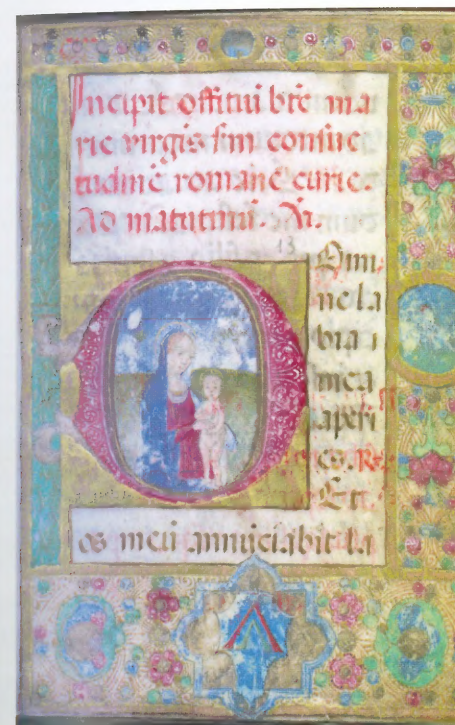 Incipit offitiũ btẽ ma
rie virgis scđm consue
tudinẽ romanẽ curie.
Ad matutinũ. Vr.
13
Domi
ne la
bia
mea
aperi
es. R.
Et
os meũ annũciabit la